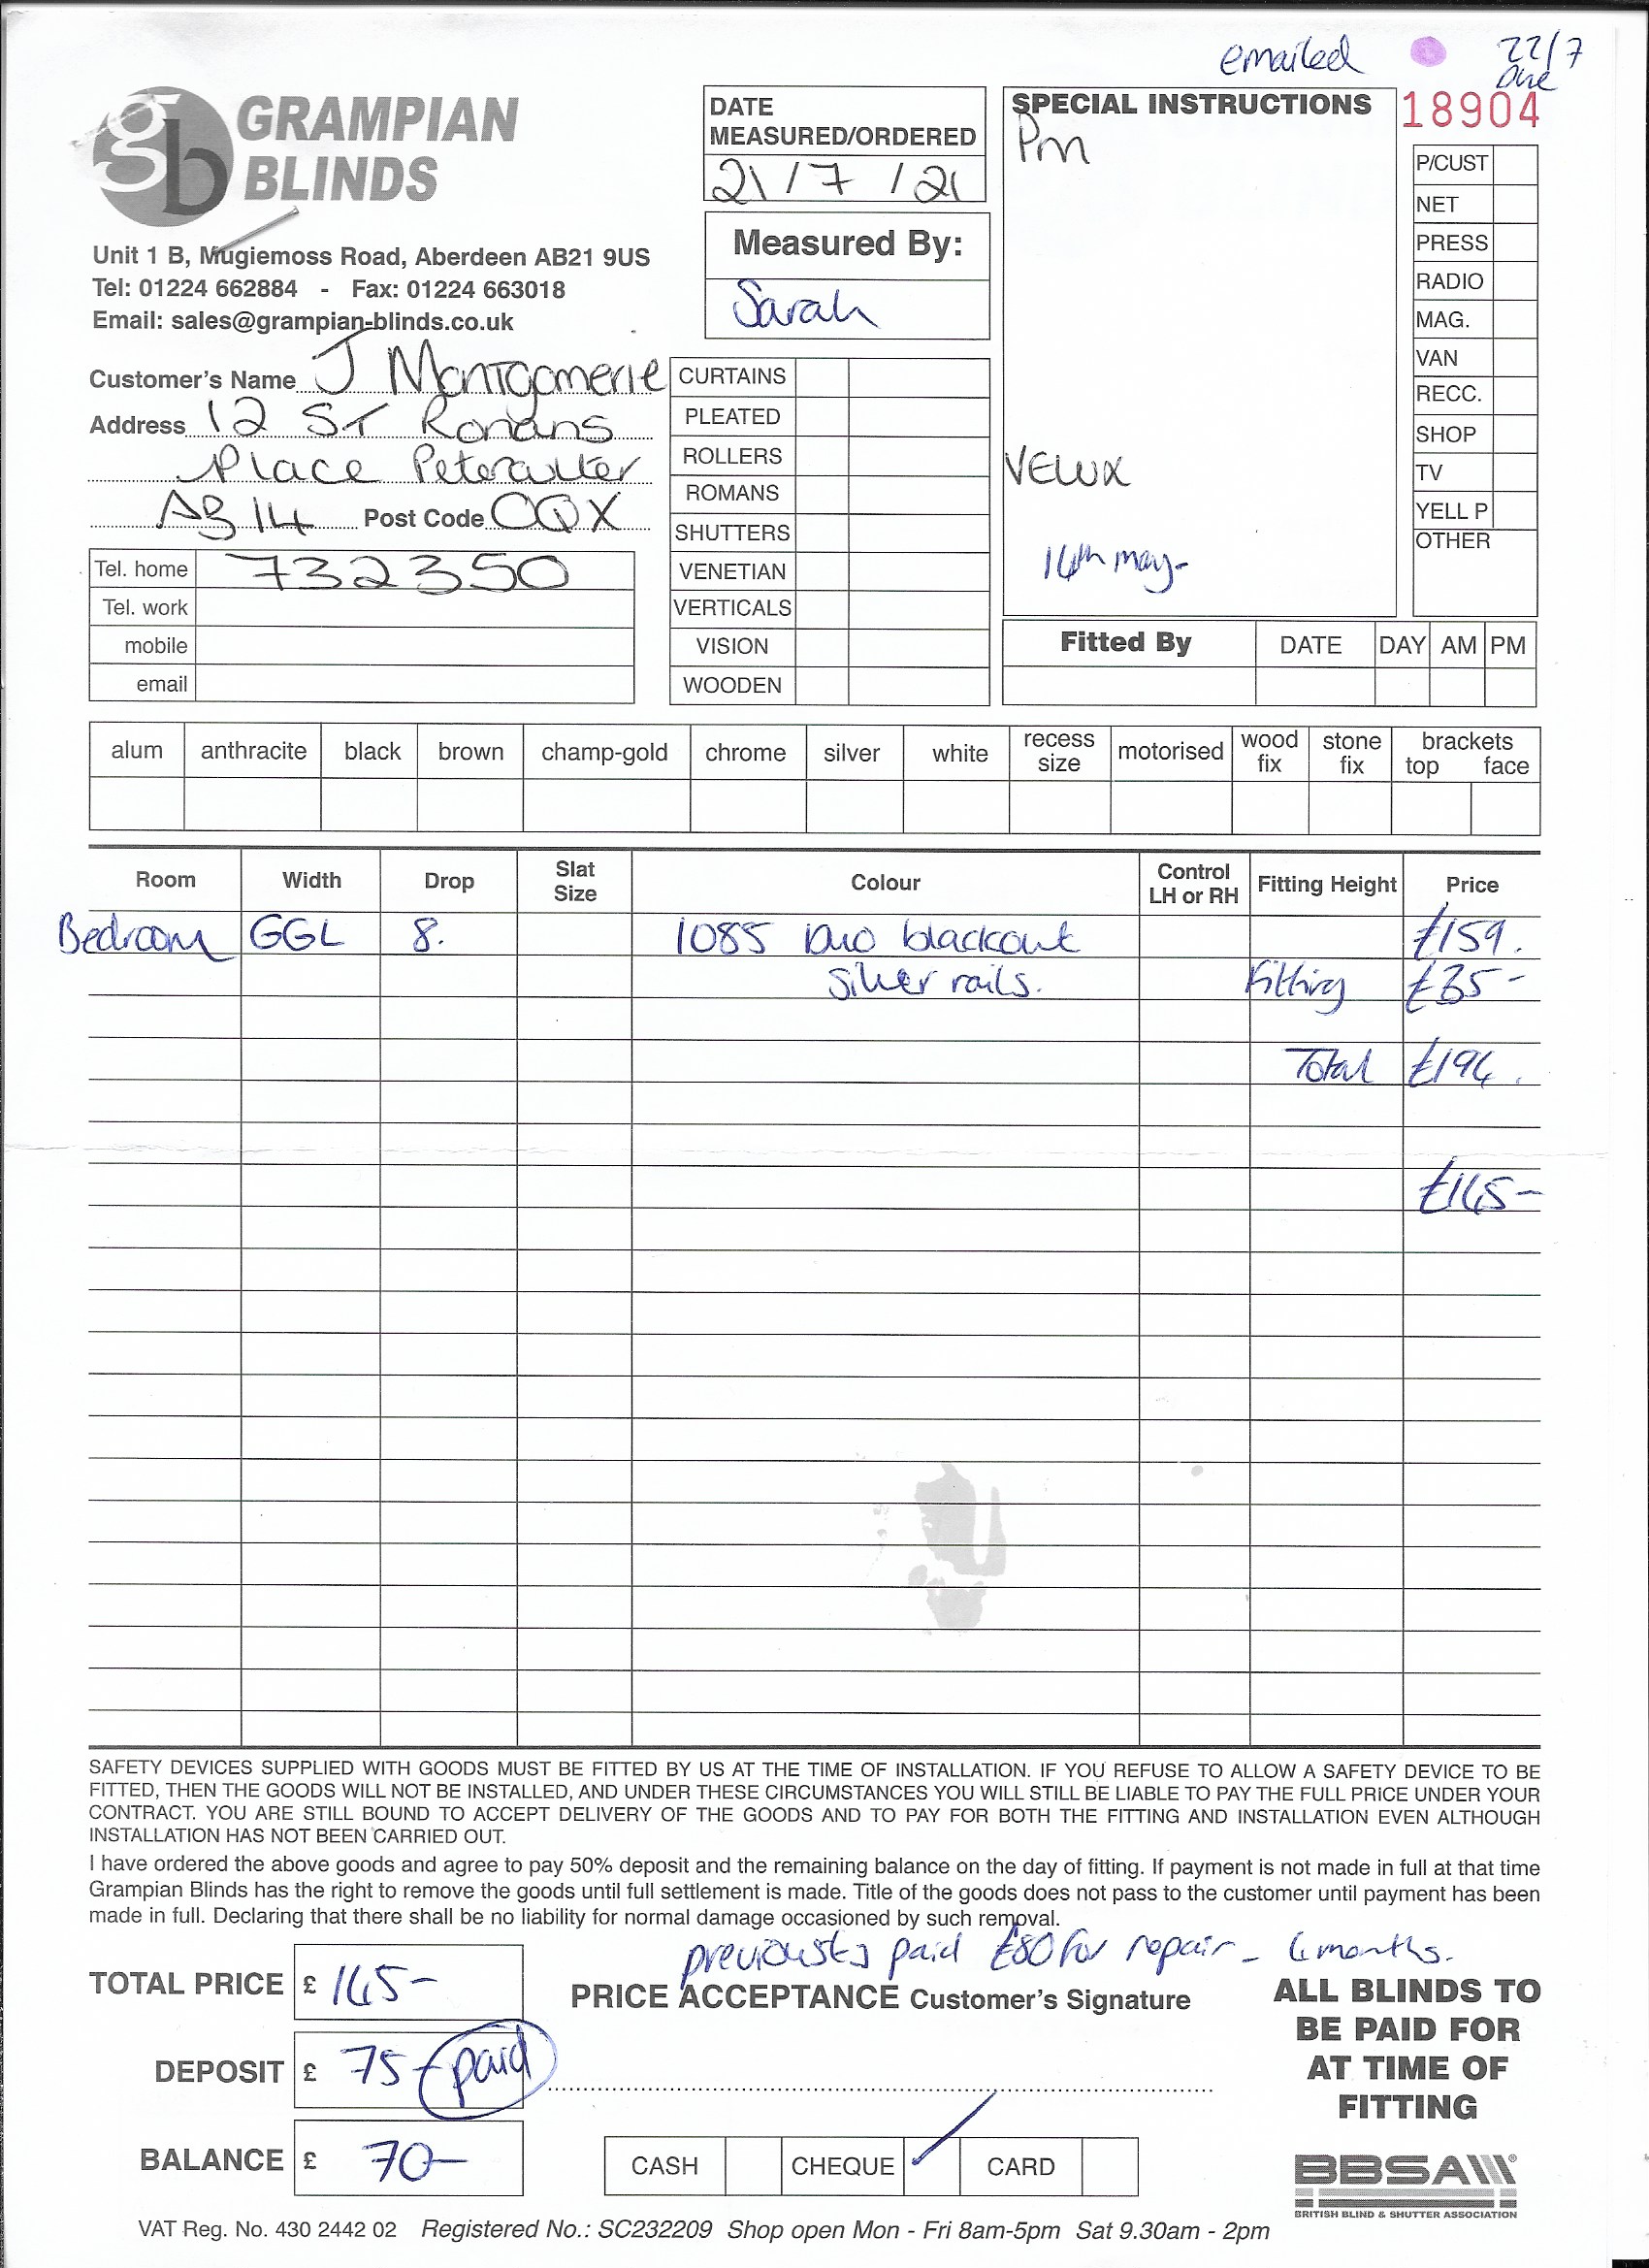 emailed 22/7
Due
GRAMPIAN
BLINDS
Unit 1 B, Mugiemoss Road, Aberdeen AB21 9US
Tel: 01224 662884 - Fax: 01224 663018
Email: sales@grampian-blinds.co.uk
DATE
MEASURED/ORDERED
21/7/21
Measured By:
Sarah
SPECIAL INSTRUCTIONS
Pm
VELUX
14th may-
18904
P/CUST
NET
PRESS
RADIO
MAG.
VAN
RECC.
SHOP
TV
YELL P
OTHER
Customer's Name J Montgomerie
Address 12 ST Ronans
Place Peterculter
AB14 Post Code 0QX
Tel. home 732350
Tel. work
mobile
email
CURTAINS
PLEATED
ROLLERS
ROMANS
SHUTTERS
VENETIAN
VERTICALS
VISION
WOODEN
Fitted By DATE DAY AM PM
alum anthracite black brown champ-gold chrome silver white recess size motorised wood fix stone fix brackets top face
Room Width Drop Slat Size Colour Control LH or RH Fitting Height Price
Bedroom GGL 8. 1085 Duo blackout £159.
silver rails. Fitting £35-
Total £194.
£145-
SAFETY DEVICES SUPPLIED WITH GOODS MUST BE FITTED BY US AT THE TIME OF INSTALLATION. IF YOU REFUSE TO ALLOW A SAFETY DEVICE TO BE
FITTED, THEN THE GOODS WILL NOT BE INSTALLED, AND UNDER THESE CIRCUMSTANCES YOU WILL STILL BE LIABLE TO PAY THE FULL PRICE UNDER YOUR
CONTRACT. YOU ARE STILL BOUND TO ACCEPT DELIVERY OF THE GOODS AND TO PAY FOR BOTH THE FITTING AND INSTALLATION EVEN ALTHOUGH
INSTALLATION HAS NOT BEEN CARRIED OUT.
I have ordered the above goods and agree to pay 50% deposit and the remaining balance on the day of fitting. If payment is not made in full at that time
Grampian Blinds has the right to remove the goods until full settlement is made. Title of the goods does not pass to the customer until payment has been
made in full. Declaring that there shall be no liability for normal damage occasioned by such removal.
previously paid £80 for repair - 4 months.
TOTAL PRICE £ 145-
PRICE ACCEPTANCE Customer's Signature
DEPOSIT £ 75- paid
BALANCE £ 70-
CASH CHEQUE ✓ CARD
ALL BLINDS TO
BE PAID FOR
AT TIME OF
FITTING
BBSA
BRITISH BLIND & SHUTTER ASSOCIATION
VAT Reg. No. 430 2442 02 Registered No.: SC232209 Shop open Mon - Fri 8am-5pm Sat 9.30am - 2pm